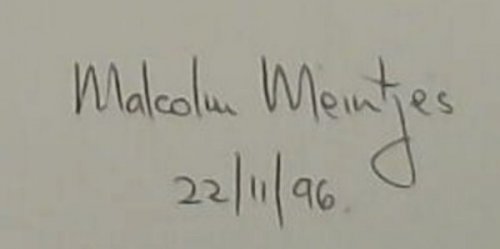 Malcolm Meintjes
22/11/96.